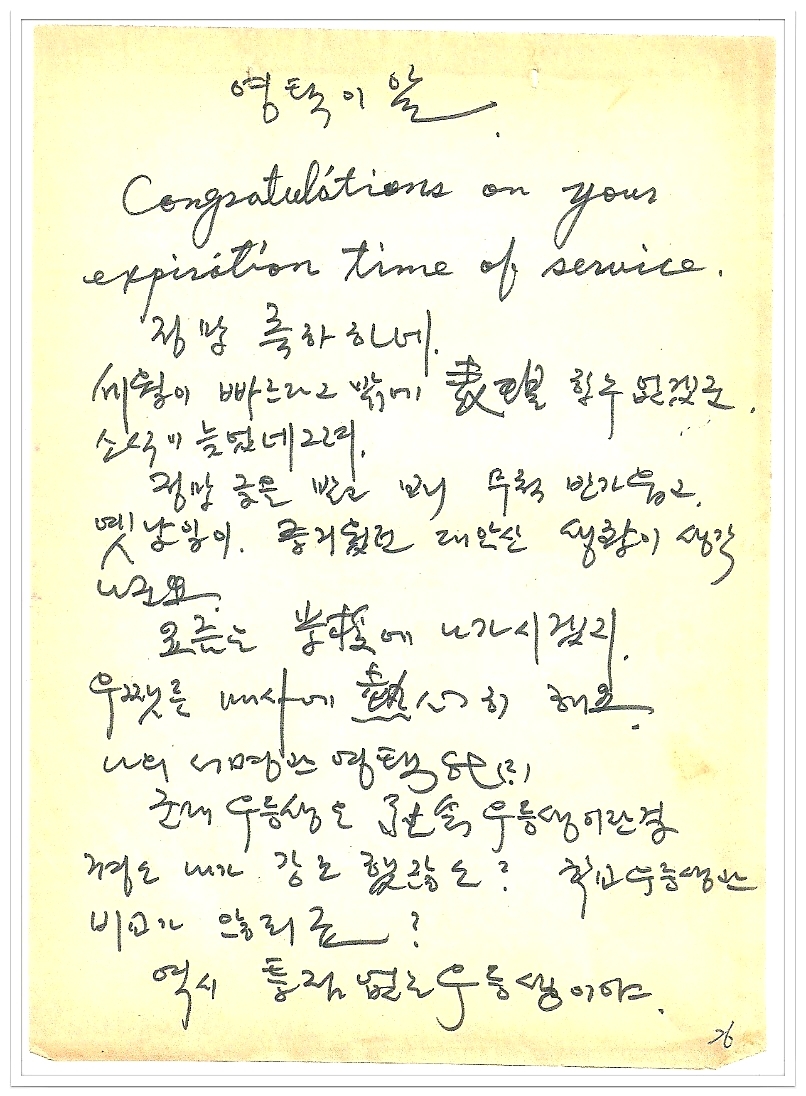 영택이 앞.
Congratulátions on your
expirátion time of service.
정말 축하하네.
세월이 빠르다고 밖에 表現 할수 없겠군.
소식이 늦었네그려.
정말 글을 받고 보니 무척 반가웁고,
옛날일이. 즐거웠던 대안산 생활이 생각
나군요.
요즘은 学校에 나가시겠지.
우쨋든 매사에 熱心히 해요.
나의 서명과 영택
군대 우등생은 우등생이란걸
내가 강조 했잖소? 학교우등생과
비교가 않되군?
역시 틀림 없는 우등생이야.
26